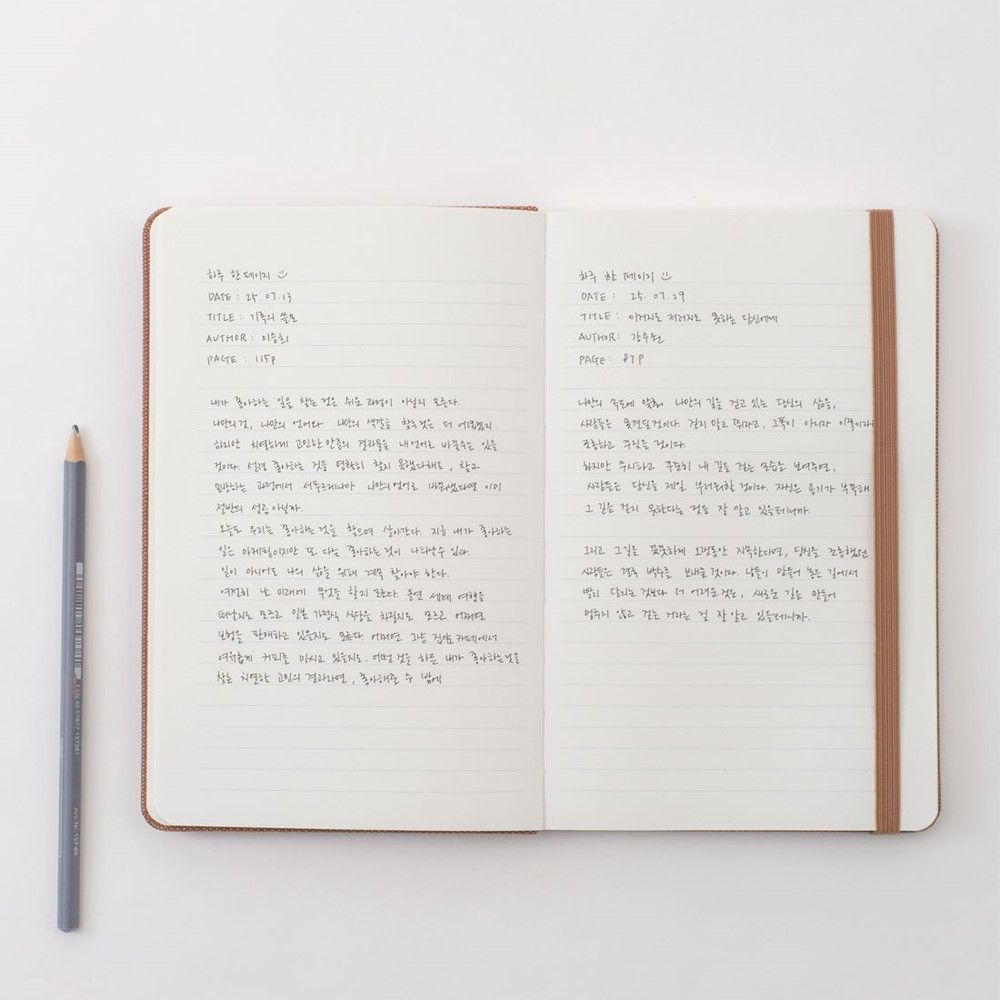 하루 한 페이지
DATE : 25. 07. 13
TITLE : 기록의 쓸모
AUTHOR : 이승희
PAGE : 115p
내가 좋아하는 일을 찾는 것은 쉬운 과정이 아닐지 모른다.
나만의 것, 나만의 언어와 나만의 색깔을 찾는 것은 더 어렵겠지
하지만 치열하게 고민한 만큼의 결과물을 내 언어로 바꿀수는 있을
것이다. 설령 좋아하는 것을 명확히 찾지 못했다해도, 찾고
고민하는 과정에서 서투르게나마 나만의 언어로 바꾸었다면 이미
절반의 성공 아닐까.
오늘도 우리는 좋아하는 것을 찾으며 살아간다. 지금 내가 좋아하는
일은 마케팅이지만 또 다른 좋아하는 것이 나타날수 있다.
일이 아니어도 나의 삶을 위해 계속 찾아야 한다.
여전히 난 미래에 무엇을 할지 모른다. 돌연 세계 여행을
떠날지도 모르고 일본 가정식 식당을 차릴지도 모르고 어쩌면
보험을 판매하고 있을지도 모른다. 어쩌면 그냥 집앞 카페에서
여유롭게 커피를 마시고 있을지도. 어떤 것을 하든 내가 좋아하는 것을
찾는 치열한 고민의 결과라면, 좋아해줄 수 밖에
하루 한 페이지
DATE : 25. 07. 29
TITLE : 이러지도 저러지도 못하는 당신에게
AUTHOR : 강주원
PAGE : 87P
나만의 속도에 맞춰, 나만의 길을 걷고 있는 당신의 삶을,
사람들은 못견딜것이다. 걷지 말고 뛰라고, 그쪽이 아니라 이쪽이라
조롱하고 꾸짖을 것이다.
하지만 무시하고 꾸준히 내 길을 걷는 모습을 보여주면,
사람들은 당신을 제일 부러워할 것이다. 자신은 용기가 부족해
그 길을 걷지 못한다는 것을 잘 알고 있을테니까.
그리고 그 길을 꿋꿋하게 오랫동안 지속한다면, 당신을 조롱했던
사람들은 결국 박수를 보내줄 것이다. 남들이 만들어 놓은 길에서
빨리 달리는 것보다 더 어려운 것은, 새로운 길을 만들어
멈추지 않고 걷는 거라는 걸 잘 알고 있을테니까.